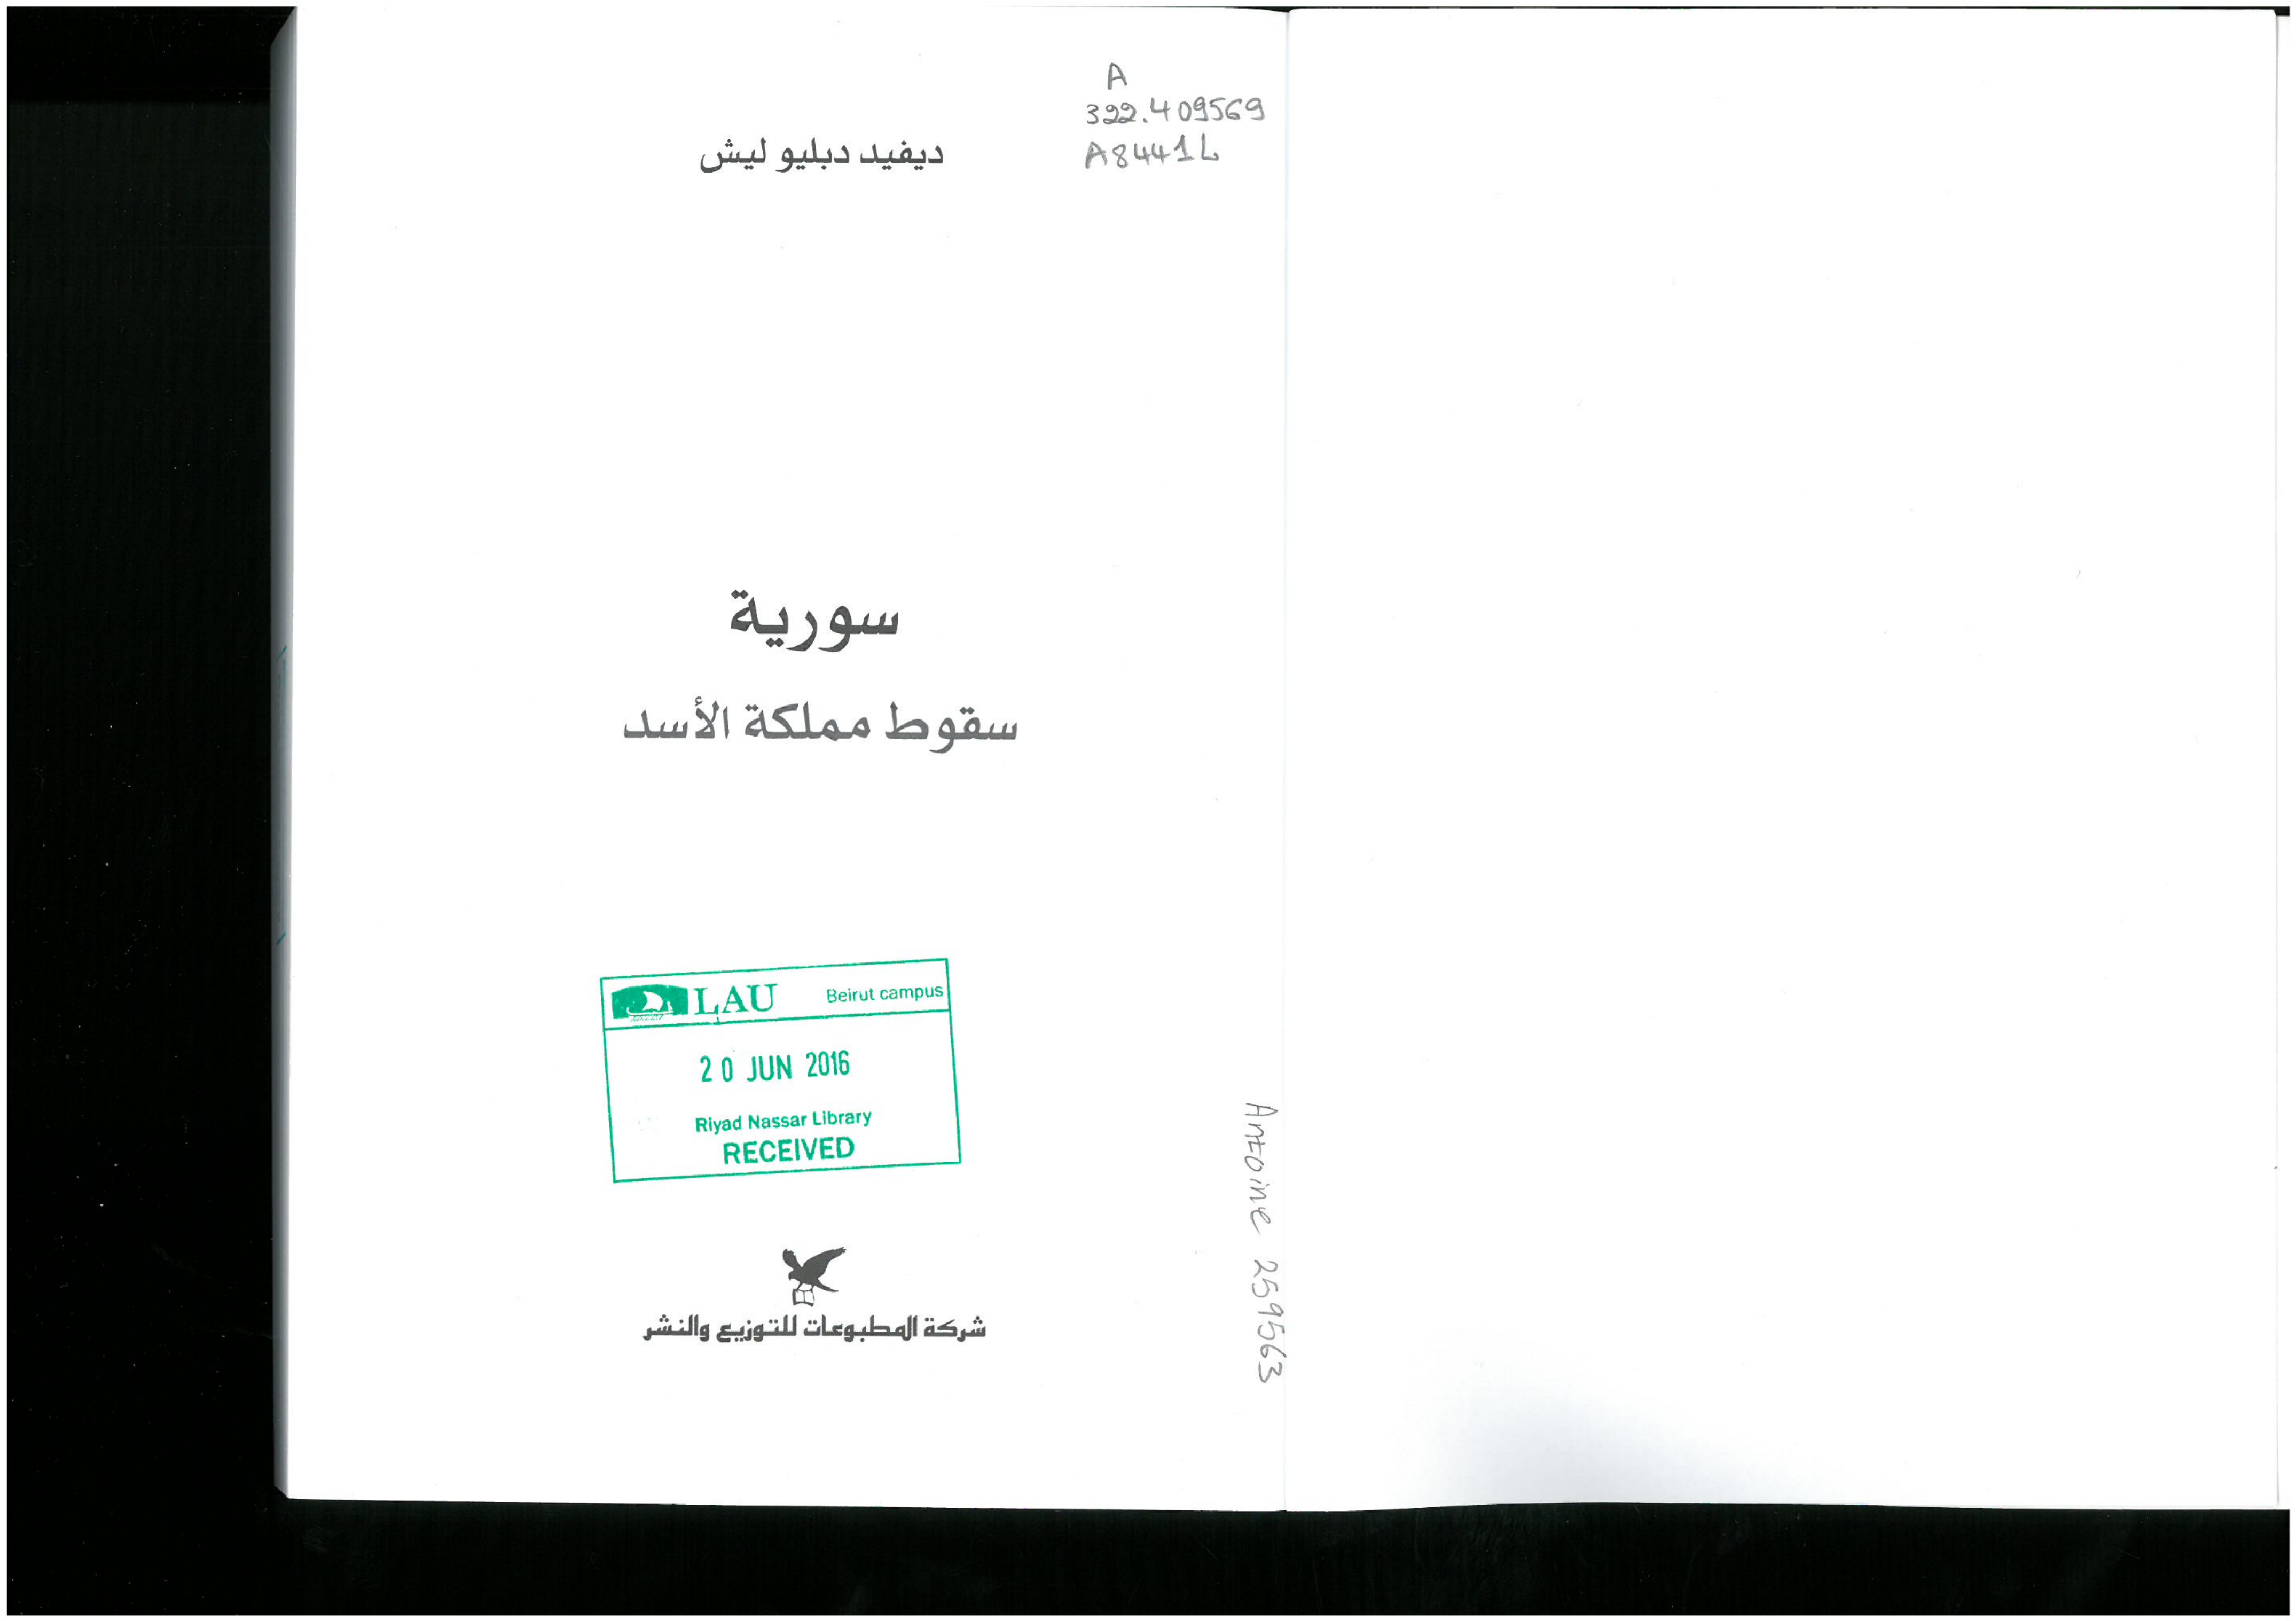 A
322.409569
A8441L
ديفيد دبليو ليش
سورية
سقوط مملكة الأسد
LAU Beirut campus
20 JUN 2016
Riyad Nassar Library
RECEIVED
Antoine 259563
شركة المطبوعات للتوزيع والنشر